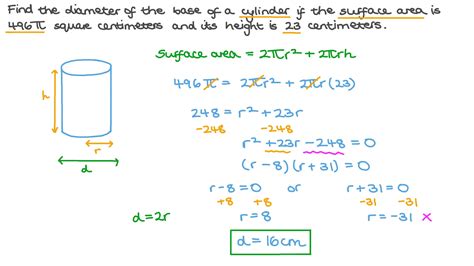 Find the diameter of the base of a cylinder if the surface area is
496π square centimeters and its height is 23 centimeters.
surface area = 2πr² + 2πrh
496π = 2πr² + 2πr(23)
248 = r² + 23r
-248 -248
r² + 23r - 248 = 0
(r - 8)(r + 31) = 0
r - 8 = 0 or r + 31 = 0
+8 +8 -31 -31
d = 2r r = 8 r = -31 ×
d = 16cm
h
r
d